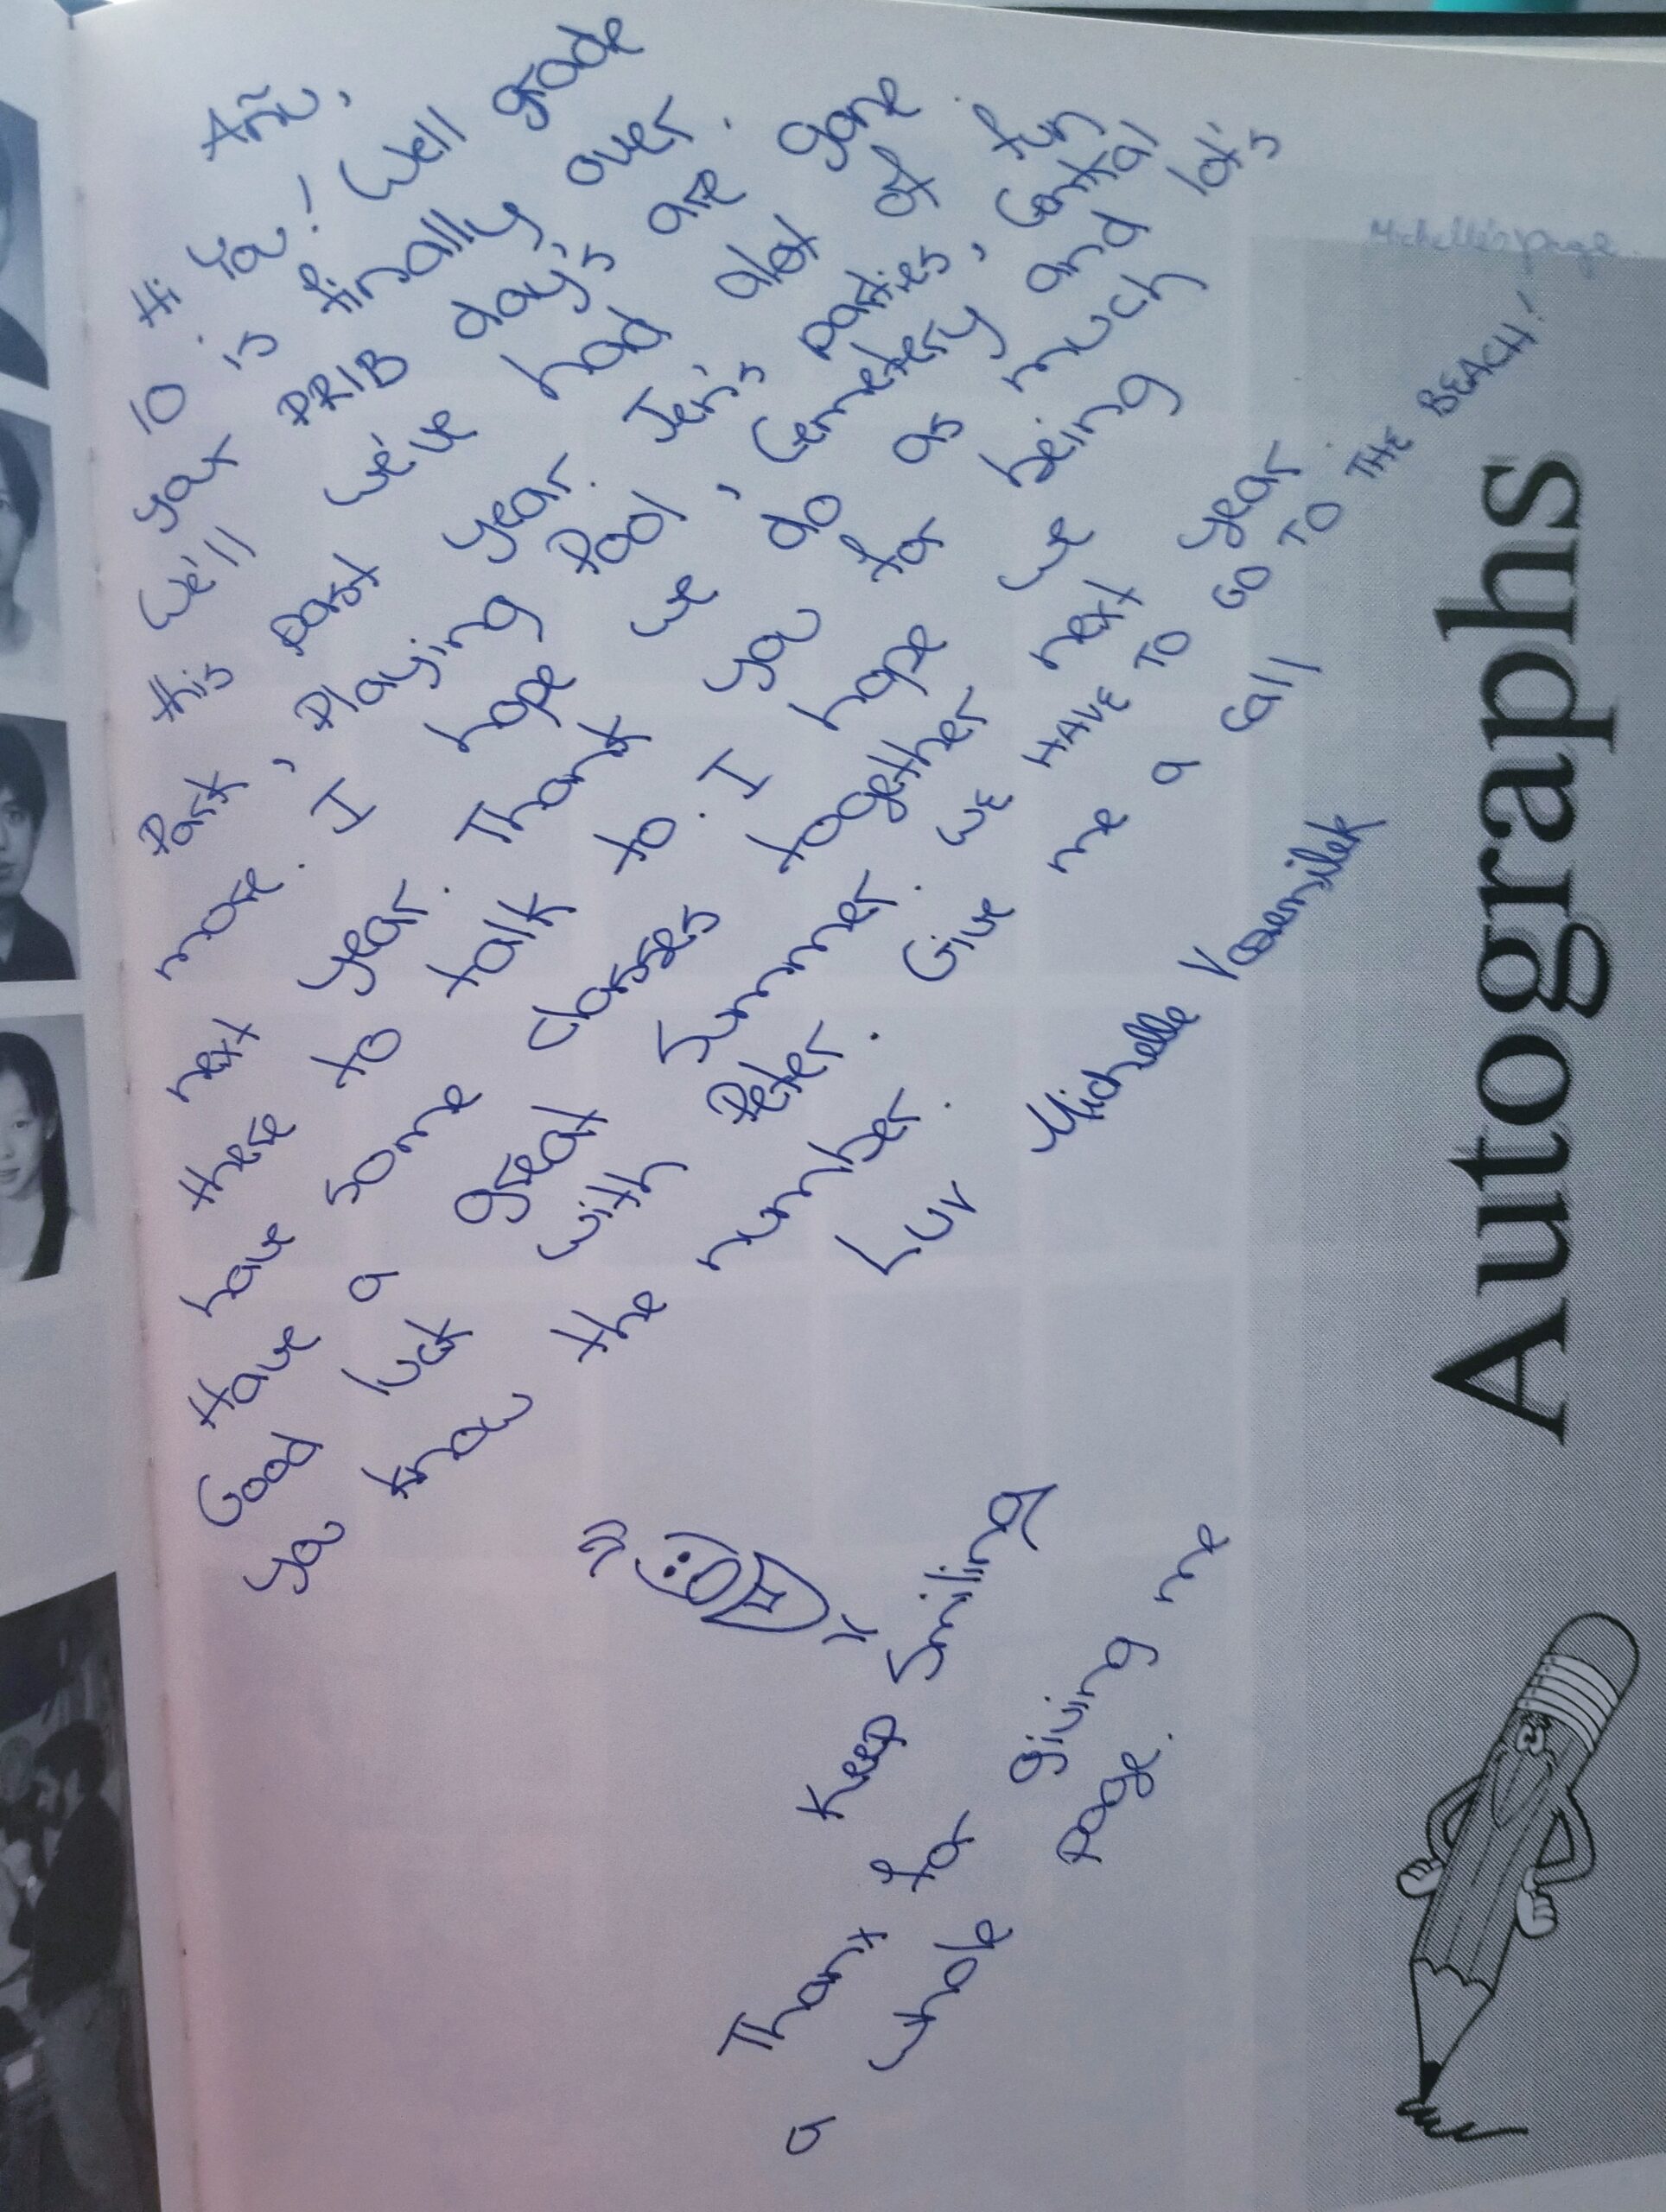 Hi Ya! Well grade
10 is finally over.
PRIB day's are gone.
We'll we've had alot of fun
this past year. Jen's parties, Central
Park, Playing Pool, Cemetery and lot's
more. I hope we do as much
next year. Thank you for being
there to talk to. I hope we
have some classes together next year
Have a great Summer. WE HAVE TO GO TO THE BEACH!
Good luck with Peter. Give me a call
You know the number.
Luv Michelle
Keep Smiling
Thanx for giving me
a whole page.
Michelle's page.
Autographs